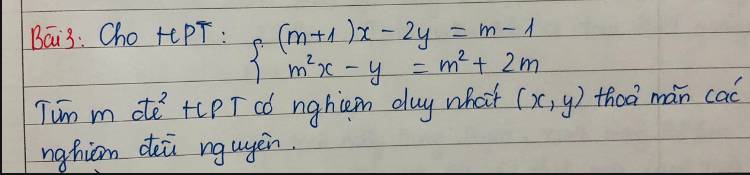 Bài 3: Cho HPT: { (m+1)x - 2y = m - 1
m²x - y = m² + 2m
Tìm m để HPT có nghiệm duy nhất (x, y) thoả mãn các
nghiệm đều nguyên.